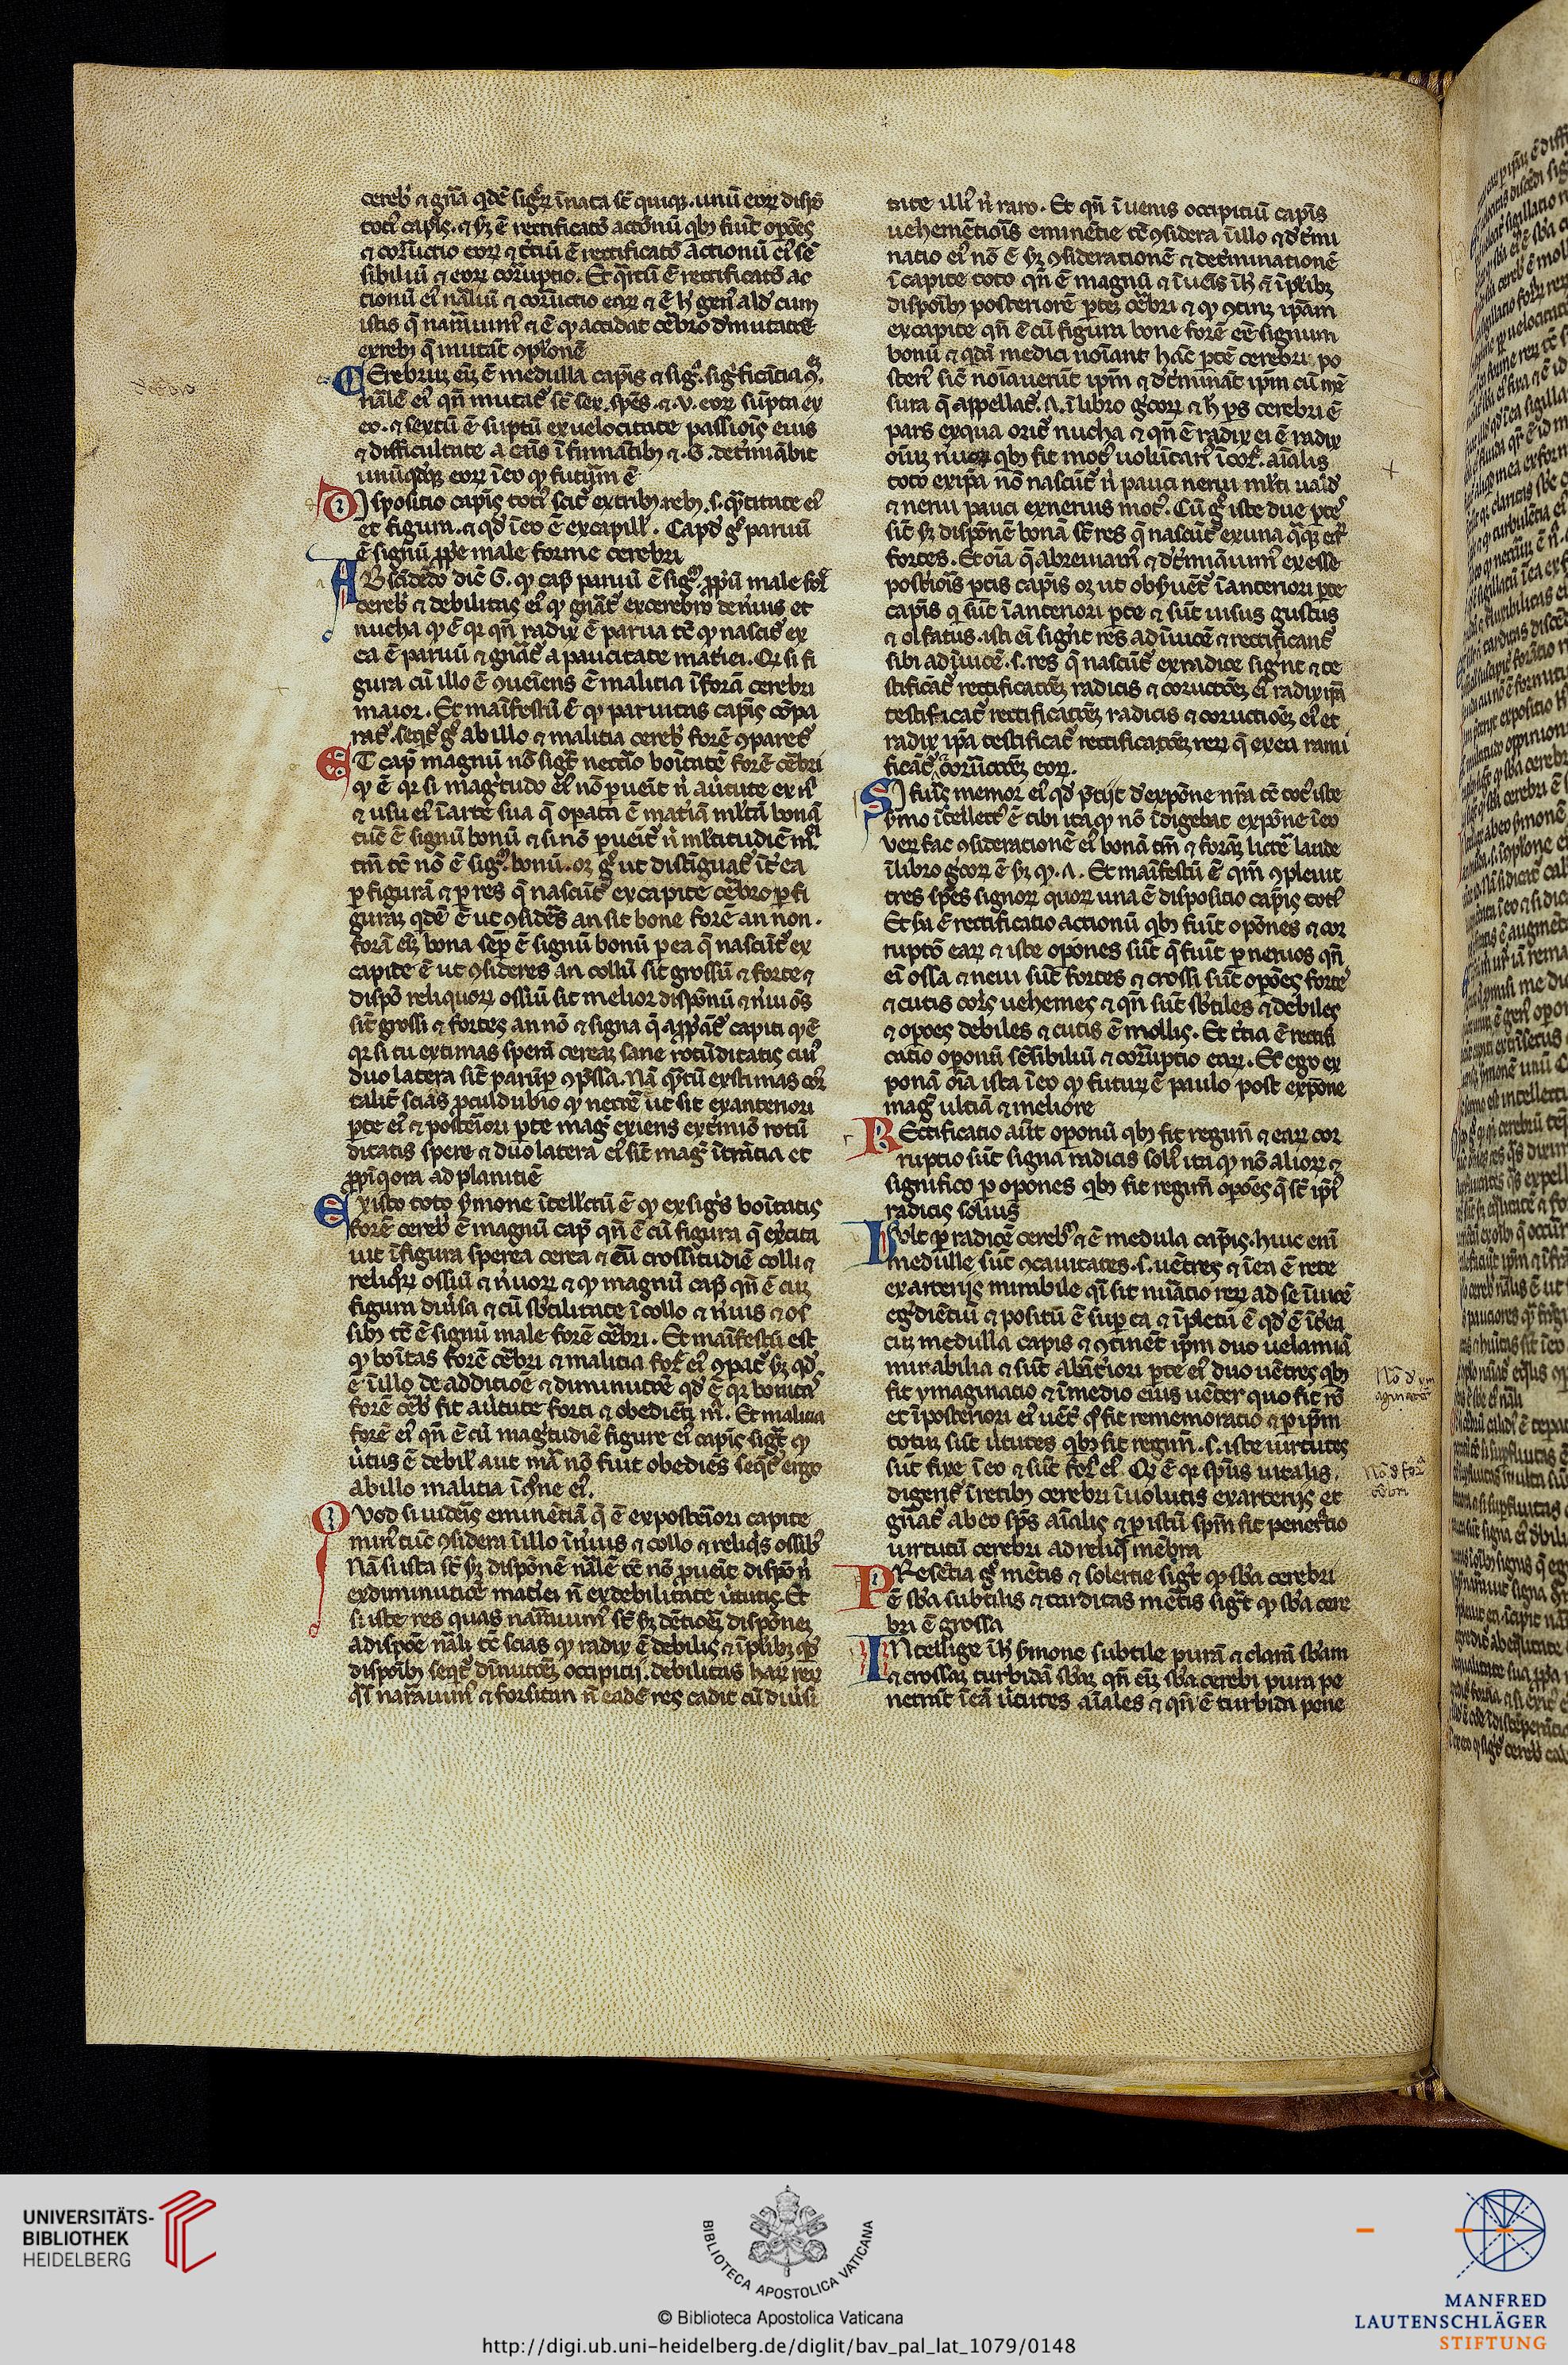 cereb̕ ⁊ gn̄a qdē sigͦꝝ īnata sc̄ quiqꝫ. unū eoꝝ dispō
toti᷒ capis̄. ⁊ ẜꝫ ē rectificatō actōnū qbꝫ fiūt opōes
⁊ corr̄uctio eoꝝ ⁊ tc̄iū ē rectificatō actionū ei᷒ sē
sibiliū ⁊ eoꝝ corr̄uptio. Et qͣrtū ē rectificatō ac
tionū ei᷒ nāliū ⁊ corr̄uctio eaꝝ
istis q̄ narrauim᷒ ⁊ ē ꝙ accidat cēbro
ex rebꝫ q̄ mutāt ↄplōnē
Cerebruꝫ eīꝫ ē medulla capis̄ ⁊
nālē ei᷒ qn̄ mutat᷒ sc̄ sex. spēs. ⁊ .v. eoꝝ sūpta ex
eo. ⁊ sextū ē suptū ex uelocitate passiōis eius
⁊ difficultate
unūqdqꝫ eoꝝ ī eo ꝙ futuꝝ ē
Dispositio capis̄ toti᷒ scit᷒ ex trib᷒ reb᷒. s. qͣntitate ei᷒
et figura. ⁊ qd̓ ī eo ē ex capill̓. Capd̓ gͦ paruū
ē signū ꝓpe male forme cerebri
Abscīdēdo dic̄ G. ꝙ cap̄ paruū ē sigͫ. ꝓpiū male for̓
cereb̓ ⁊ debilitas ei᷒ ꝙ gnāt᷒ ex cerebro neruus et
nucha ꝙ ē qꝛ qn̄ radix ē parua tc̄ ꝙ nascit᷒ ex
ea ē paruū ⁊ gnāt᷒ a paucitate materiei. Qꝛ si fi
gura cū illo ē ↄueiēns ē malitia ī forā cerebri
maior. Et maīfestū ē ꝙ paruitas capis̄ cōpa
rat᷒. seqt᷒ gͦ ab illo ⁊ malitia cereb̓ forē ↄparet᷒
Et cap̄ magnū nō sigt̓ necc̄io boītatē forē cēbri
ꝙ ē qꝛ si magͥtudo ei᷒ nō ꝓueit n̓
⁊ usu ei᷒ ī arte sua q̄ opatā ē mat̓iā ml̓tā bonā
tūc ē signū bonū ⁊ si nō ꝓueit᷒ n̓ ml̓titudīe
tm̄ tc̄ nō ē sigͫ. bonū. oꝫ gͦ ut distīguat᷒ īt̓ ea
ꝑ figurā ⁊ ꝑ res q̄ nascūt᷒ ex capite cēbro ꝑ fi
guraꝫ qdē ē ut ↄsid̓es an sit bone forē an non.
forā eīꝫ bona seꝑ ē signū bonū ꝑ ea q̄ nascūt᷒ ex
capite ē ut ↄsideres an collū sit grossū ⁊ forte ⁊
dispō reliquoꝝ ossiū sit melior dispōnū ⁊ n̓ui oc̄s
sīt grossi ⁊ fortes an nō ⁊ signa q̄ appāt᷒ capiti ꝙ ē
qꝛ si tu extimas sperā cereaꝫ sane rotūditatis cui᷒
duo latera sīt parūꝑ ↄpssa. Nā qͣntū existimas
talit̓ scias ꝓculdubio ꝙ necc̄ē ut sit ex anteriori
ꝑte ei᷒ ⁊ post̓iori ꝑte mag̓ exiens ext̓miō rotū
ditatis spere ⁊ duo latera ei᷒ sīt mag̓ ītrātia et
ꝓpīqiora ad planitiē
Ex isto toto ẜmone ītellc̄tū ē ꝙ ex sigͥs boītatis
forē cereb̓ ē magnū cap̄ qn̄ ē cū figura q̄
uit ī figura sperea cerea ⁊ cū crossitudīe colli ⁊
reliqͦꝝ ossiū ⁊ n̓uoꝝ ⁊ ꝙ magnū cap̄ qn̄ ē cuꝫ
figura diuisa ⁊ cū sb̓tilitate ī collo ⁊ n̓uis ⁊ os
sibꝫ tc̄ ē signū male forē cēbri. Et maīfestū est
ꝙ boītas forē cēbri ⁊ malicia for̓ ei᷒ ↄpat᷒ ẜꝫ qd̓
ē ī illo de additiōe ⁊ diminutōe qd̓ ē qꝛ bonita᷒
forē cēb̓ fit a ūtute forti ⁊ obediēti mͣ. Et malicia
forē ei᷒ qn̄ ē cū magͥtudīe figure ei᷒ capis̄ sigt̓ ꝙ
ūtus ē debil̓ aut mā nō fiuit obediēs seqt᷒ ergo
ab illo malitia ī ↄ̓ne ei᷒.
Quod si uideis̄ eminētiā q̄ ē ex posteriori capite
min᷒ tūc ↄsidera ī illo ī n̓uis ⁊ collo ⁊ reliqͥs ossib᷒
Nā si ista sc̄ ẜꝫ dispōnē nālē tc̄ nō ꝓueit dispō n̓
ex diminutiōe mat̓iei n̄ ex debilitate ūtutis. Et
si iste res quas narrauim᷒ sc̄ ẜꝫ
a dispōe nāli tc̄ scias ꝙ radix ē debilis ⁊ ī plibꝫ
dispōibꝫ seqt᷒ dīnutōꝫ occipitij. debilitas haꝝ reꝝ
qͣs narrauim᷒ ⁊ forsitan n̄ eadē res cadit cū diuisi
tate illi᷒ n̓ raro. Et qn̄ ī uenis occipitiū capis̄
uehemētiois̄ eminētie tc̄ ↄsidera ī illo ⁊ det̓mi
natio ei᷒ nō ē ẜꝫ ↄsiderationē ⁊ det̓minationē
ī capite toto qn̄ ē magnū ⁊ ī ueis̄ ī h̓ ⁊ ī plibꝫ
dispōibꝫ posteriorē ꝑteꝫ cēbri ⁊ ꝙ ↄtinꝫ ipāꝫ
ex capite qn̄ ē cū figura bone forē ee̅ signum
bonū ⁊ qdā medici noīant hāc ꝑtē cerebri po
steri᷒ sic̄ noīauerūt ipm̄ ⁊ det̓mināt ipm̄ cū mē
sura q̄ appellat᷒ .A. ī libro gͦcoꝝ ⁊ h̓ ps cerebri ē
pars ex qua orit᷒ nucha ⁊ qn̄ ē radix ei ē radix
oīuꝫ n̓uoꝝ qbꝫ fit mot᷒ uolūtari᷒ ī cor᷒. aīalis
toto ex ipā nō nascūt᷒ n̓ pauci nerui ml̓ti uald̓
⁊ nerui pauci ex neruis mot᷒. Cū gͦ iste due ꝑte᷒
sīt ẜꝫ dispōnē bonā sc̄ res q̄ nascūt᷒ ex una
fortes. Et oīa q̄ abreuiam᷒ ⁊ det̓mīauim᷒ ex esse
post̓iois̄ ptis capis̄ oꝫ ut obẜuet᷒ ī anteriori ꝑte
capis̄ q̄ sūt ī anteriori ꝑte ⁊ sūt uisus gustus
⁊ olfatus. isti ei᷒ signt̓ res ad īuicē ⁊ rectificant᷒
sibi ad īuicē. s. res q̄ nascūt᷒ ex radice signt̓ ⁊ te
stificāt᷒ rectificatōeꝫ radicis ⁊ coructōeꝫ ei᷒ radix ipā
testificat᷒ rectificatōeꝫ radicis ⁊ coructiōeꝫ ei᷒ et
radix ipā testificat᷒ rectificatōeꝫ reꝝ q̄ ex ea rami
ficāt᷒ ⁊ corructōeꝫ eoꝝ.
Si fuis̄ memor ei᷒ qd̓ p̄tijt d̓ expōne nr̄a tc̄ tot᷒ iste
ẜmo ītellect᷒ ē tibi ita ꝙ nō īdigebat expōne ī eo
ueꝝ fac ↄsiderationē ei᷒ bonā tm̄ ⁊ forāꝫ lict̓ē laude
ī libro gͦcoꝝ ē ẜꝫ ꝙ .A. Et maīfestū ē qm̄ ↄpleuit
tres spēs signoꝝ quoꝝ una ē dispositio capis̄ toti᷒
Et sa ē rectificatio actionū qbꝫ fiūt opōnes ⁊ cor
ruptō eaꝝ ⁊ iste opōnes sūt q̄ fiūt ꝑ neruos qn̄
eī ossa ⁊ nerui sūt fortes ⁊ crossi sūt opōes forte᷒
⁊ cutis cor᷒is uehemes̄ ⁊ qn̄ sūt sb̓tiles ⁊ debiles
⁊ opōes debiles ⁊ cutis ē mollis. Et t̓cia ē rectifi
catio opōnū sēsibiliū ⁊ corr̄uptio eaꝝ. Et ego ex
ponā oīa ista ī eo ꝙ futuꝝ ē paulo post expōne
mag̓ ultiā ⁊ meliorē
Rectificatio aūt opōnū qbꝫ fit regim̄ ⁊ eaꝝ cor
ruptio sūt signa radicis soli᷒ ita ꝙ nō alioꝝ ⁊
significo ꝑ opōnes qbꝫ fit regim̄ opōes q̄ sc̄ ipi᷒
radicis solius
Uolt ꝑ radicē cereb̓ꝫ ⁊ ē medula capis̄. huic enī
medulle sūt ↄcauitates. s. uētres ⁊ ī ea ē rete
ex arterijs mirabile qͥ fit nūatio reꝝ ad se īuicē
egͣdiētiū ⁊ positū ē suꝑ ea ⁊ īpletū ē qd̓ ē īt̓ ea
cuꝫ medulla capis ⁊ ↄtinēt ipm̄ duo uelamīa
mirabilia ⁊ sūt ab ant̓iori ꝑte ei᷒ duo uētres qbꝫ
fit ymaginatio ⁊ ī medio eius uēter quo fit rō
et ī posteriori ei᷒ uēt᷒ qͦ fit rememoratio ⁊ ꝑ ipm̄
totuꝫ sūt ūtutes qbꝫ fit regim̄. s. iste uirtutes
sūt fixe ī eo ⁊ sūt for᷒ ei᷒. Qꝫ ē qꝛ spūs uitalis.
digerit᷒ ī retibꝫ cerebri īuolutis ex arterijs et
gn̄at᷒ ab eo spūs aīalis ⁊ ꝑ istū spm̄ fit penetͣtio
uirtutū cerebri ad reliqͣ mēbra
Presētia gͦ mētis ⁊ solertie sigt̓ ꝙ sb̓a cerebri
ē sb̓a subtilis ⁊ tarditas mētis sigt̓ ꝙ sb̓a cere
bri ē grossa
Intellige ī h̓ ẜmone subtile purā ⁊ clarā sb̓am
⁊ crossaꝫ turbidā sb̓aꝫ qn̄ eīꝫ sb̓a cerebi pura pe
netrāt ī eā ūtutes aīales ⁊ qn̄ ē turbida pene
Nō d̓ ym
aginatōe
Nō d̓ forͣ
cēbri
UNIVERSITÄTS-
BIBLIOTHEK
HEIDELBERG
BIBLIOTECA APOSTOLICA VATICANA
© Biblioteca Apostolica Vaticana
http://digi.ub.uni-heidelberg.de/diglit/bav_pal_lat_1079/0148
MANFRED
LAUTENSCHLÄGER
STIFTUNG